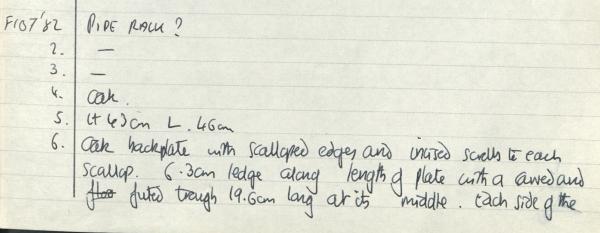 F107'82 PIPE RACK?
2. —
3. —
4. Oak.
5. H 43cm L. 46cm
6. Oak backplate with scalloped edges and incised scrolls to each
scallop. 6.3cm ledge along length of plate with a carved and
fluted trough 19.6cm long at its middle. Each side of the